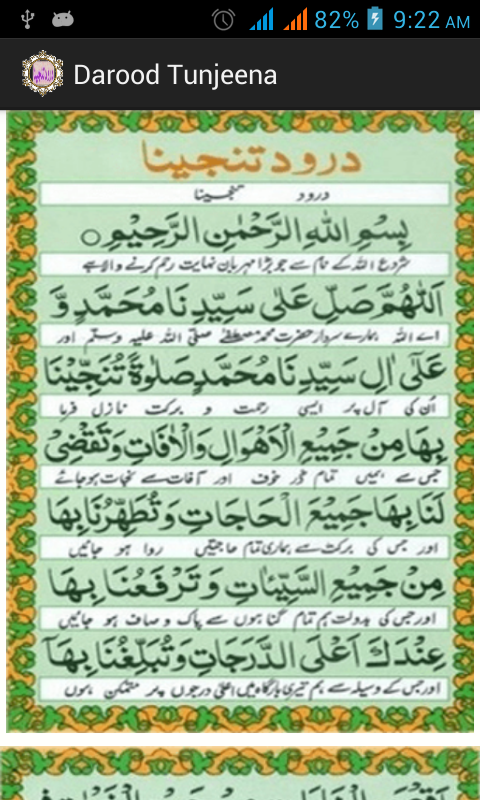 82% 9:22 AM
Darood Tunjeena
درود تنجینا
درود تنجینا
بِسْمِ اللهِ الرَّحْمٰنِ الرَّحِيْمِ
شروع اللہ کے نام سے جو بڑا مہربان نہایت رحم کرنے والا ہے
اَللّٰهُمَّ صَلِّ عَلٰى سَيِّدِنَا مُحَمَّدٍ وَّ
اے اللہ ہمارے سردار حضرت محمد مصطفےٰ صلی اللہ علیہ وسلم اور
عَلٰٓى اٰلِ سَيِّدِنَا مُحَمَّدٍ صَلٰوةً تُنَجِّيْنَا
اُن کی آل پر ایسی رحمت و برکت نازل فرما
بِهَا مِنْ جَمِيْعِ الْاَهْوَالِ وَالْاٰفَاتِ وَتَقْضِىْ
جس سے ہمیں تمام ڈر خوف اور آفات سے نجات ہو جائے
لَنَا بِهَا جَمِيْعَ الْحَاجَاتِ وَتُطَهِّرُنَا بِهَا
اور جس کی برکت سے ہماری تمام حاجتیں روا ہو جائیں
مِنْ جَمِيْعِ السَّيِّئَاتِ وَتَرْفَعُنَا بِهَا
اور جس کی بدولت ہم تمام گناہوں سے پاک و صاف ہو جائیں
عِنْدَكَ اَعْلَى الدَّرَجَاتِ وَتُبَلِّغُنَا بِهَآ
اور جس کے وسیلہ سے ہم تیری بارگاہ میں اعلیٰ درجوں پر متمکن ہوں